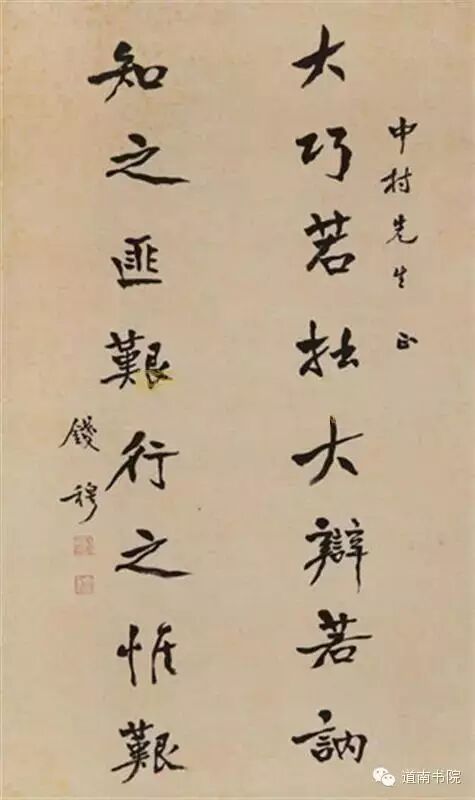 中村先生正
大巧若拙大辯若訥
知之匪艱行之惟艱
錢穆
道南书院